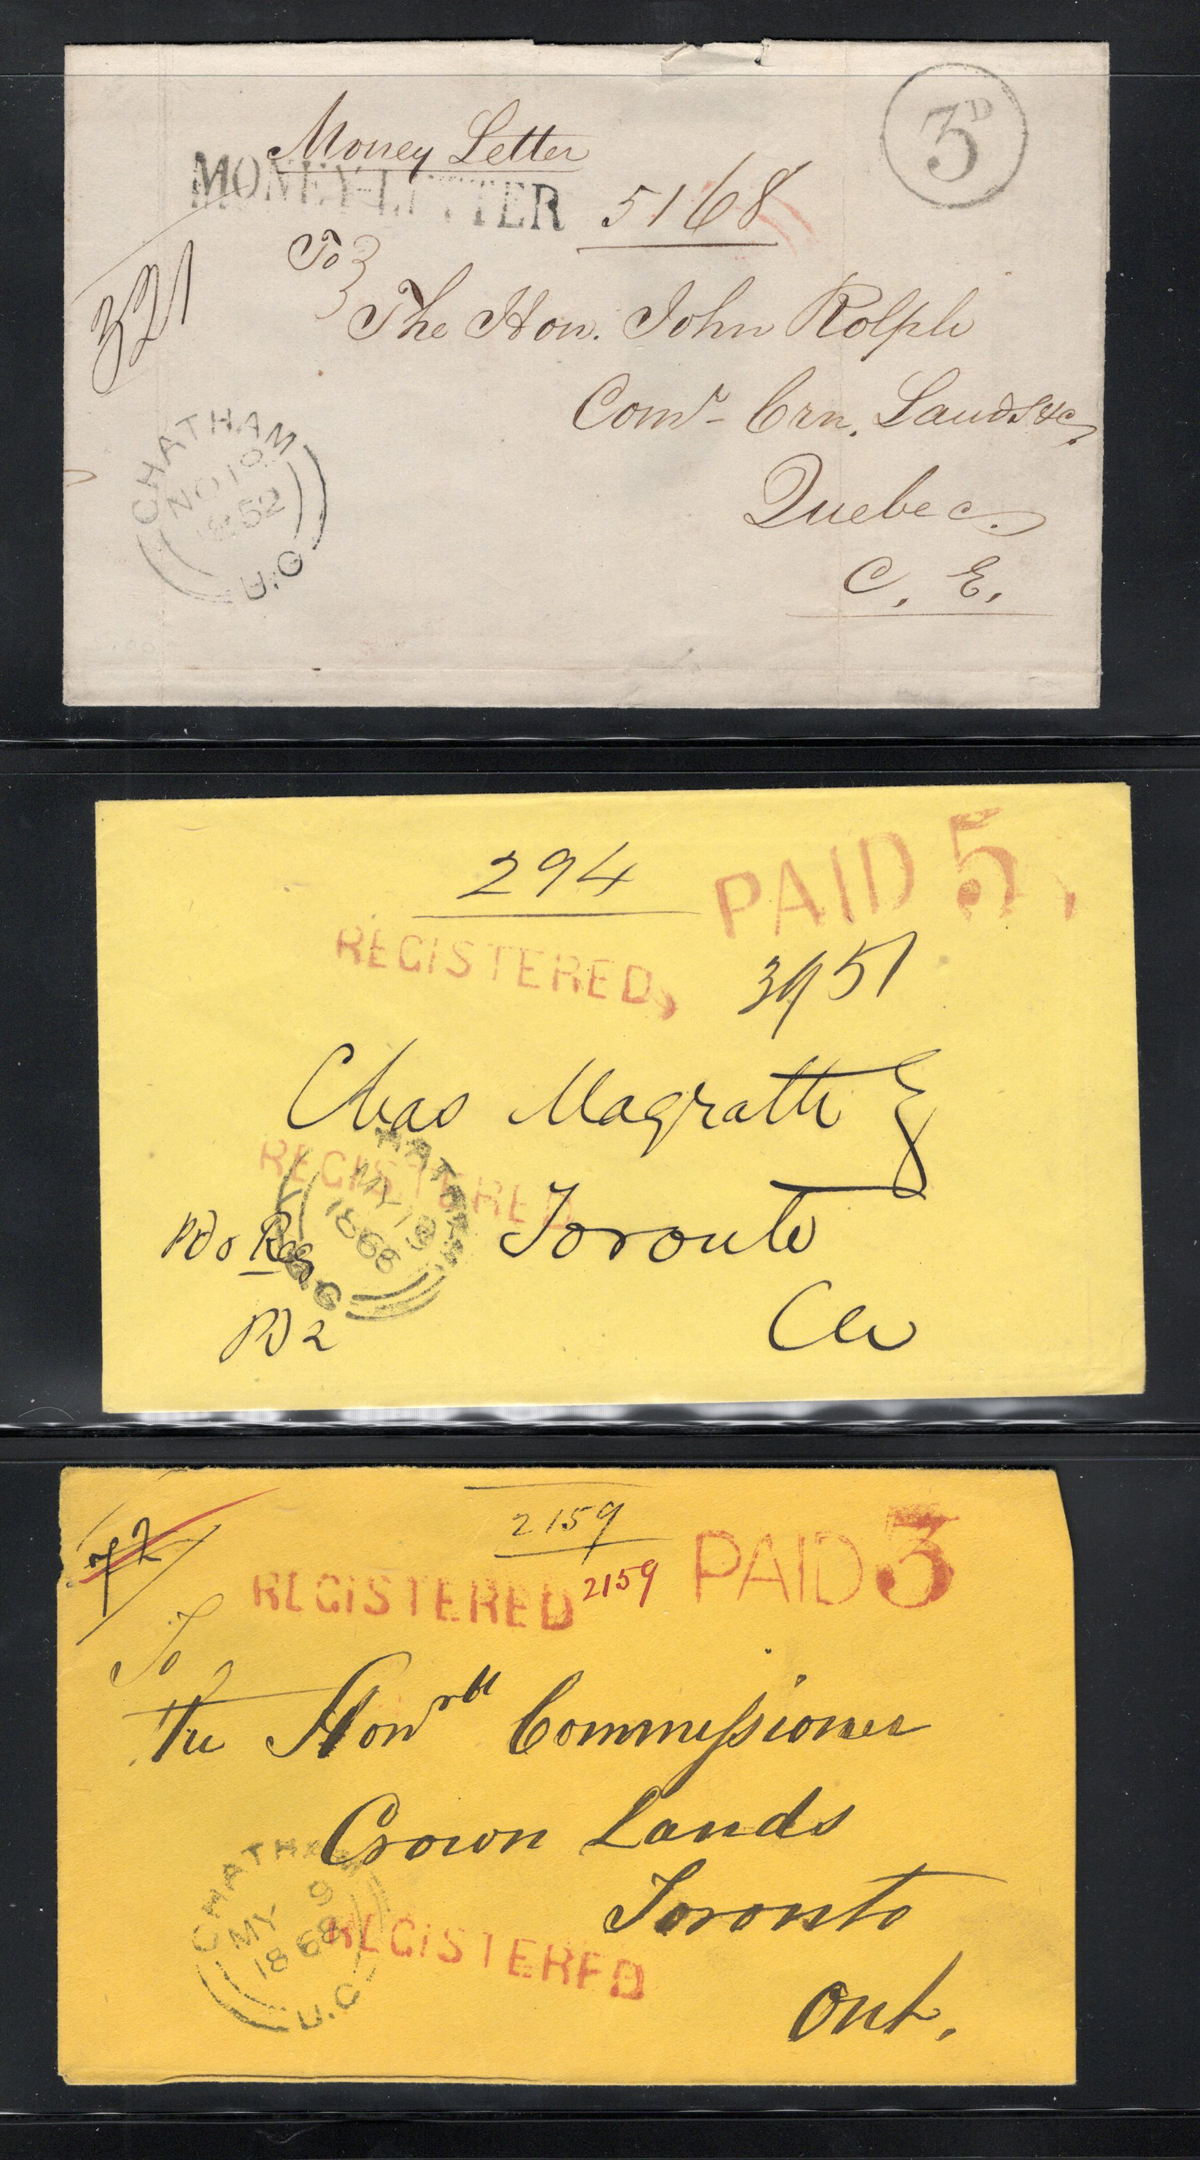 3D
Money Letter
MONEY-LETTER
5168
321
To
The Hon. John Rolph
Comr. Crn. Lands &c,
Quebec.
C. E.
CHATHAM
NO 10
1852
U.C
294
PAID 5
REGISTERED
3951
Chas Magrath
REGISTERED
Toronto
CW
Pd 5 Reg
Pd 2
MY 19
1868
2159
72
REGISTERED
2159
PAID 3
To
The Honrbl Commissioner
Crown Lands
Toronto
Ont.
CHATHAM
MY 9
1868
U.C
REGISTERED